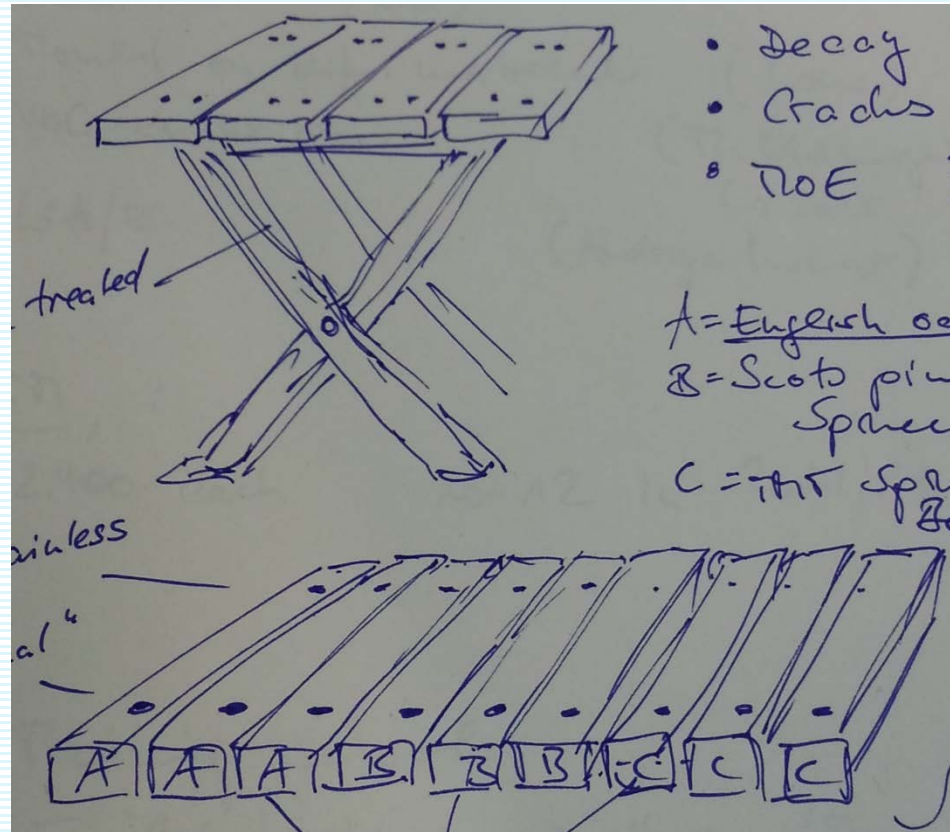 • Decay
• Cracks
• MOE
treated
A = English oa
B = Scots pin
Spruce
C = TMT Spr
ainless
al"
A A A B B B C C C